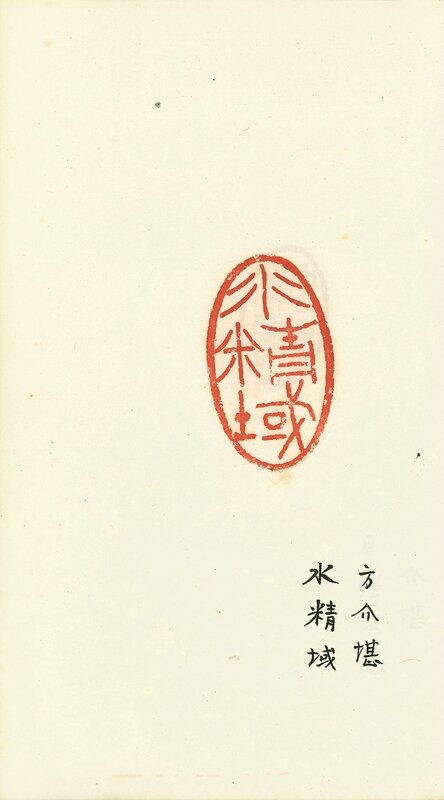 水精域
方介堪
水精域